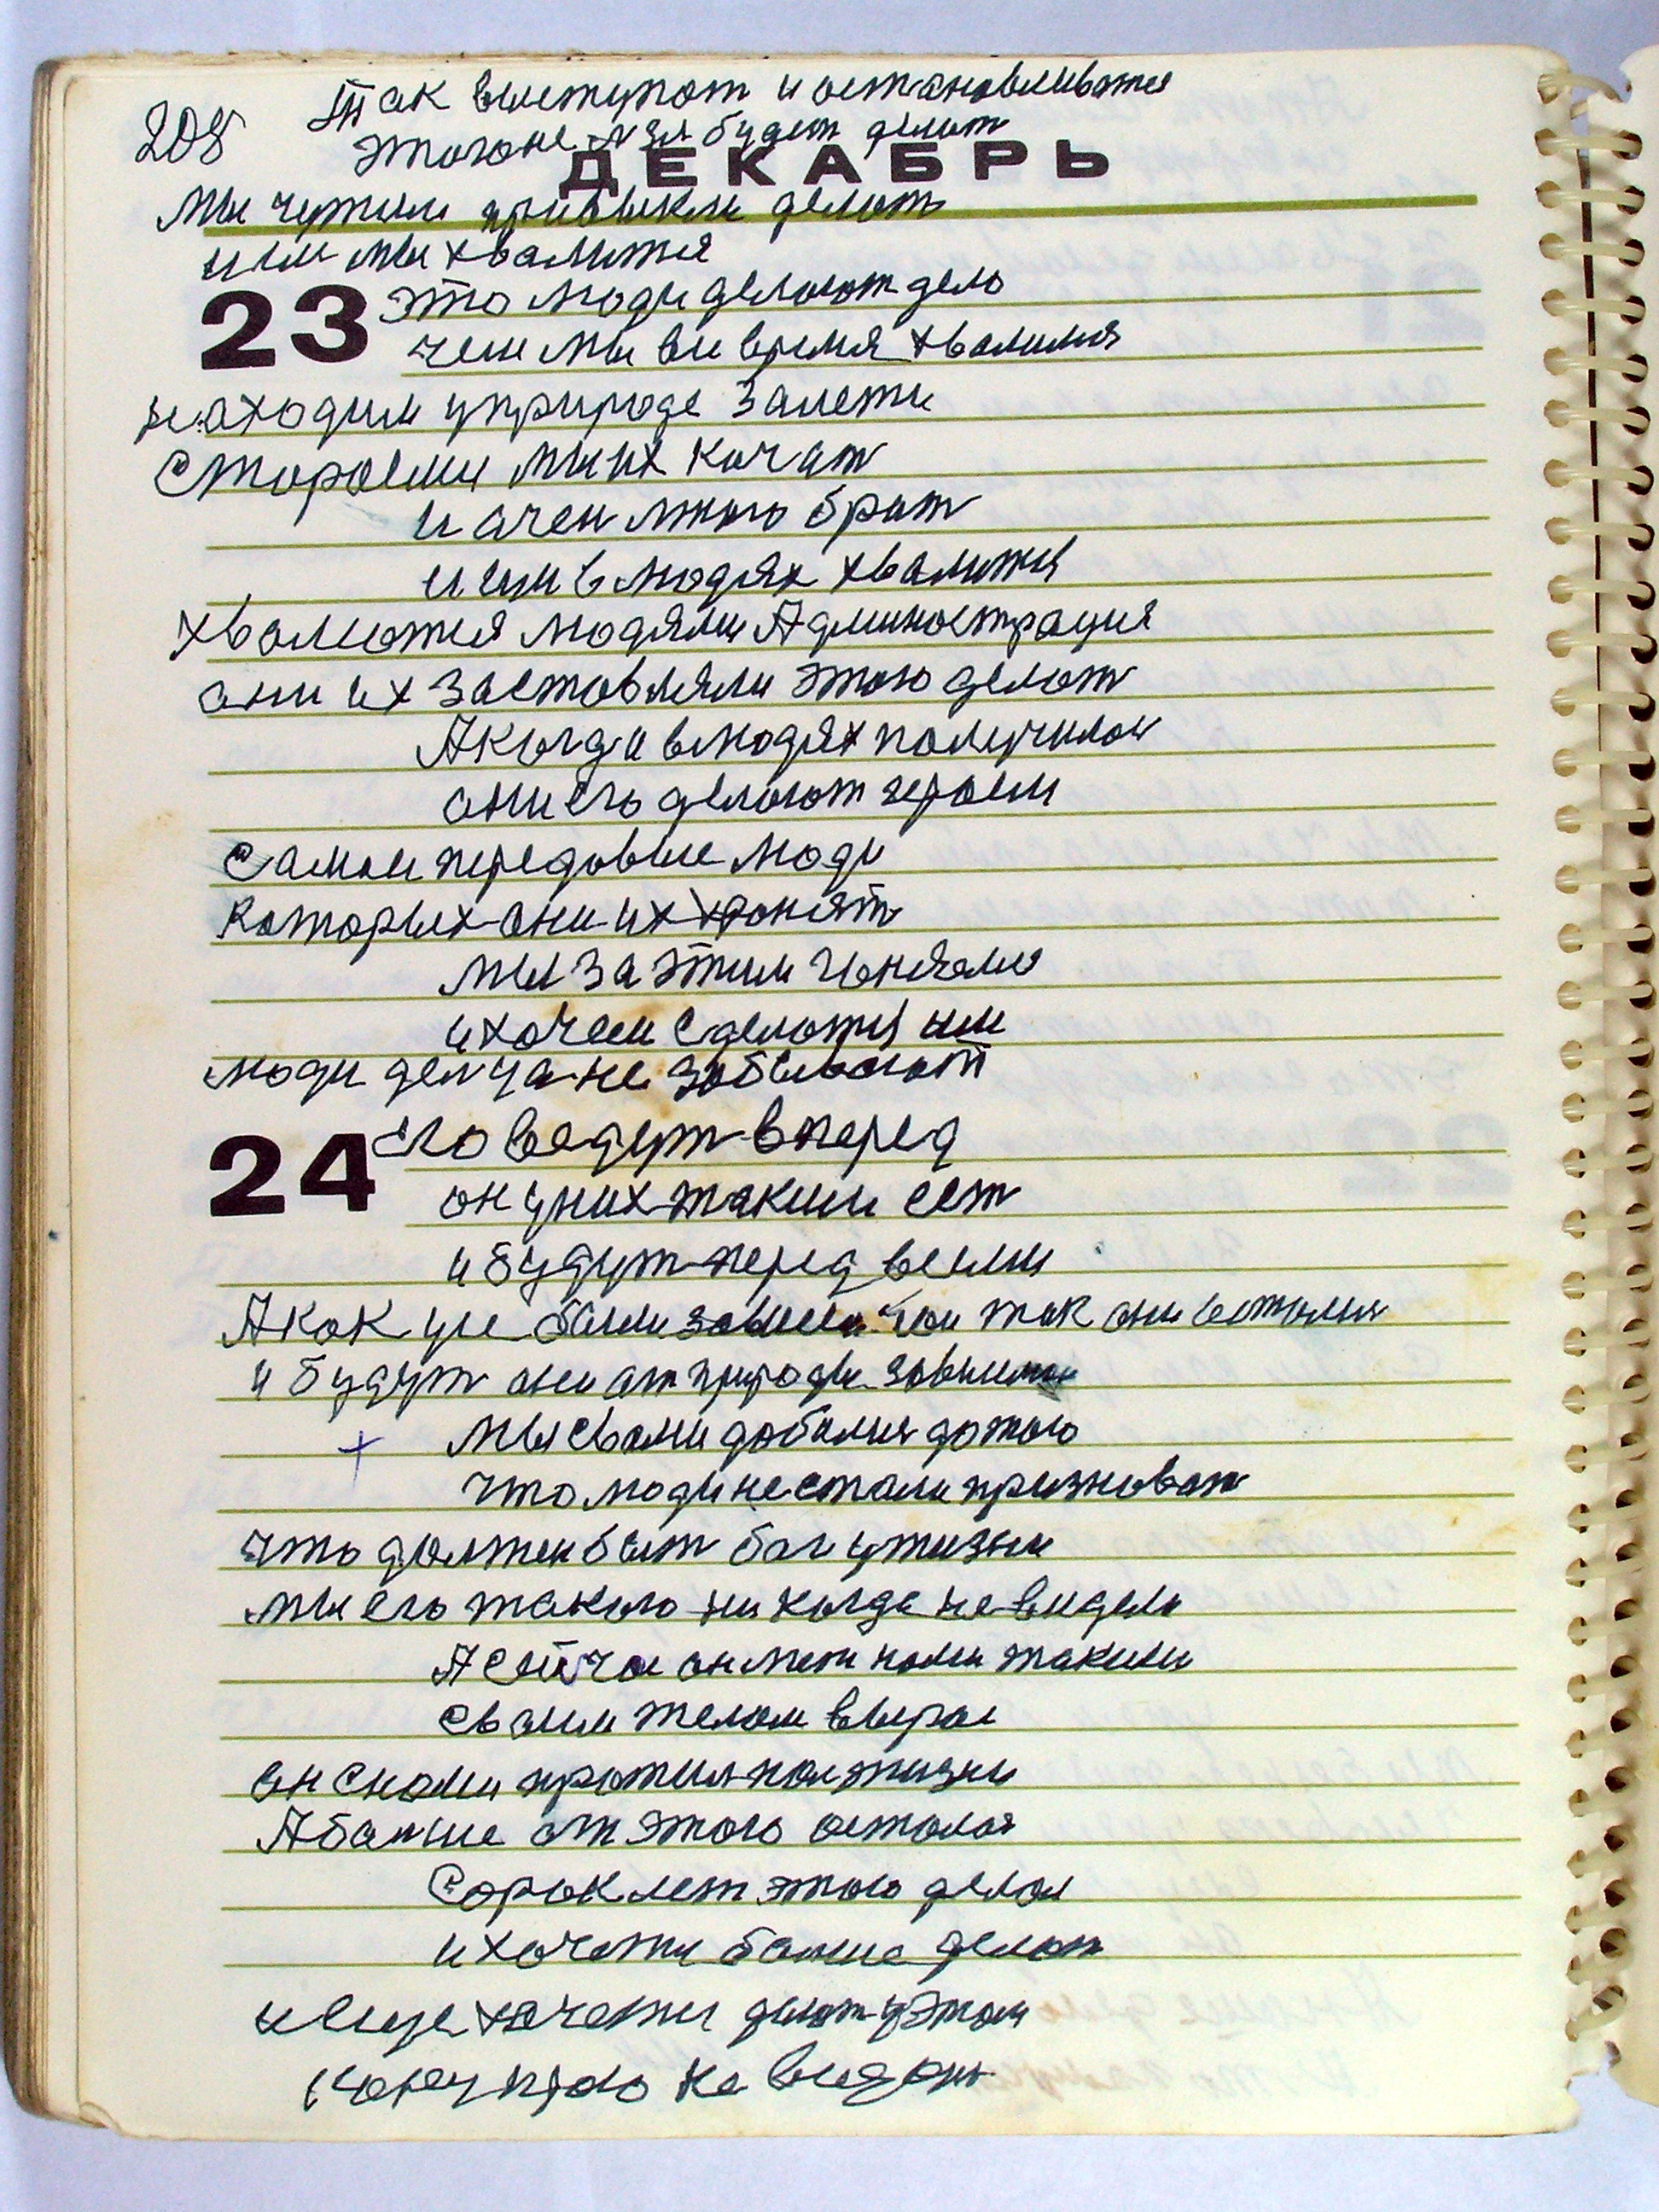 208
Так выступат и остановливатся
этого не лзя будет делат
ДЕКАБРЬ
Мы чужим привыкли делат
или мы хвалится
23 это люди делают дело
чем мы вие время хвалимся
находим у природе залежи
Стораемя мы их качат
и очен много брат
и им в людях хвалится
хвалются людями Администрация
они их заставляли этого делат
А когда в людях получилос
они его делают героем
Самыи передовые люди
которых они их хронят
мы за этим гоняемся
и хочем сделатся им
люди делца не забывают
24 его ведут вперед
он у них таким ест
и будут перед всеми
А как уже были зависимы так они осталися
и будут они от природы зависимы
мы с вами добился до того
что люди не стали признават
что должен быт бог у жизни
мы его такого никогда не видели
А сейчас он меж нами таким
своим телом вырос
он с нами против нас жизни
А болше от этого остался
Сорок лет этого делал
и хочется болше делат
и еще хочется делат у этом
концу краю не видат